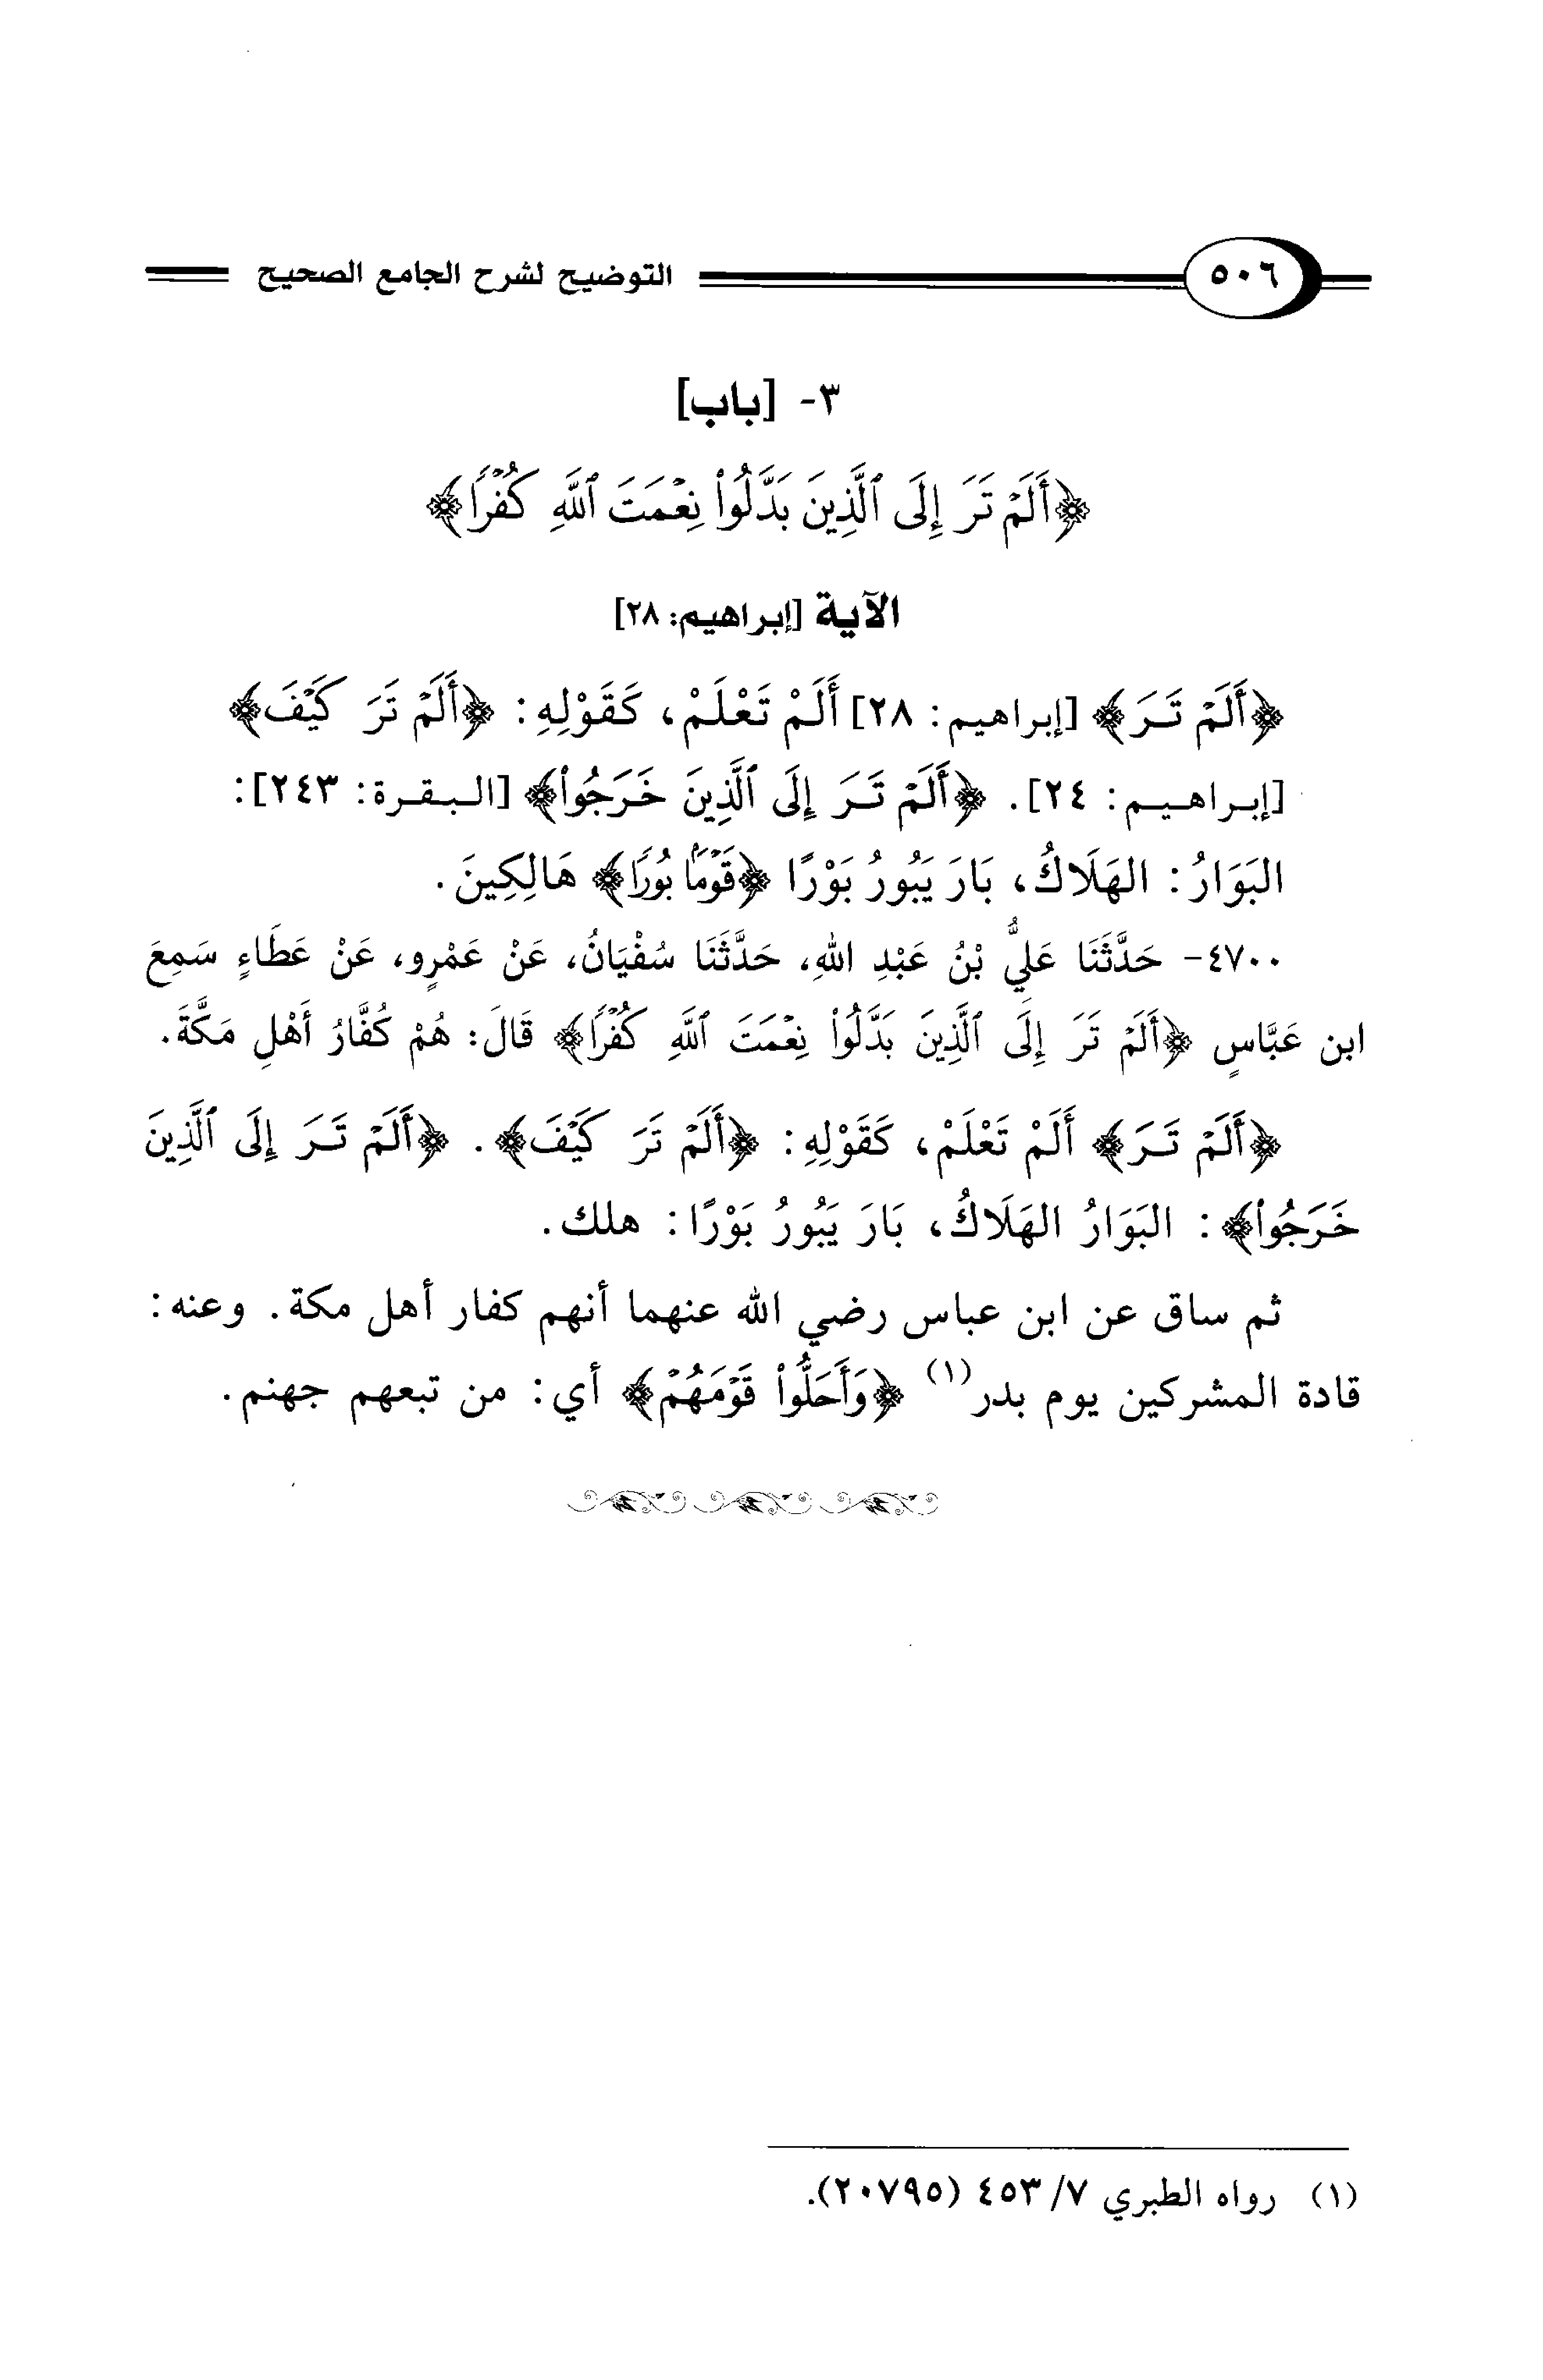 ٥٠٦ التوضيح لشرح الجامع الصحيح
٣- [باب]
﴿أَلَمْ تَرَ إِلَى ٱلَّذِينَ بَدَّلُوا۟ نِعْمَتَ ٱللَّهِ كُفْرًا﴾
الآية [إبراهيم: ٢٨]
﴿أَلَمْ تَرَ﴾ [إبراهيم: ٢٨] أَلَمْ تَعْلَمْ، كَقَوْلِهِ: ﴿أَلَمْ تَرَ كَيْفَ﴾
[إبراهيم: ٢٤]. ﴿أَلَمْ تَرَ إِلَى ٱلَّذِينَ خَرَجُوا۟﴾ [البقرة: ٢٤٣]:
البَوَارُ: الهَلَاكُ، بَارَ يَبُورُ بَوْرًا ﴿قَوْمًا بُورًا﴾ هَالِكِينَ.
٤٧٠٠- حَدَّثَنَا عَلِيُّ بْنُ عَبْدِ اللهِ، حَدَّثَنَا سُفْيَانُ، عَنْ عَمْرٍو، عَنْ عَطَاءٍ سَمِعَ
ابن عَبَّاسٍ ﴿أَلَمْ تَرَ إِلَى ٱلَّذِينَ بَدَّلُوا۟ نِعْمَتَ ٱللَّهِ كُفْرًا﴾ قَالَ: هُمْ كُفَّارُ أَهْلِ مَكَّةَ.
﴿أَلَمْ تَرَ﴾ أَلَمْ تَعْلَمْ، كَقَوْلِهِ: ﴿أَلَمْ تَرَ كَيْفَ﴾. ﴿أَلَمْ تَرَ إِلَى ٱلَّذِينَ
خَرَجُوا۟﴾: البَوَارُ الهَلَاكُ، بَارَ يَبُورُ بَوْرًا: هلك.
ثم ساق عن ابن عباس رضي الله عنهما أنهم كفار أهل مكة. وعنه:
قادة المشركين يوم بدر(١) ﴿وَأَحَلُّوا۟ قَوْمَهُمْ﴾ أي: من تبعهم جهنم.
(١) رواه الطبري ٧/ ٤٥٣ (٢٠٧٩٥).